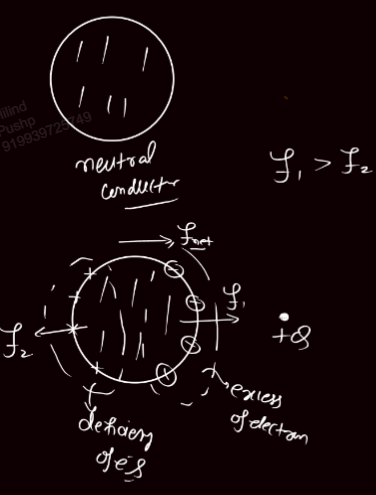 Milind
Pushp
919939725749
neutral
conductor
F₁ > F₂
Fnet
F₁
F₂
+Q
excess
of electron
deficiency
of e's